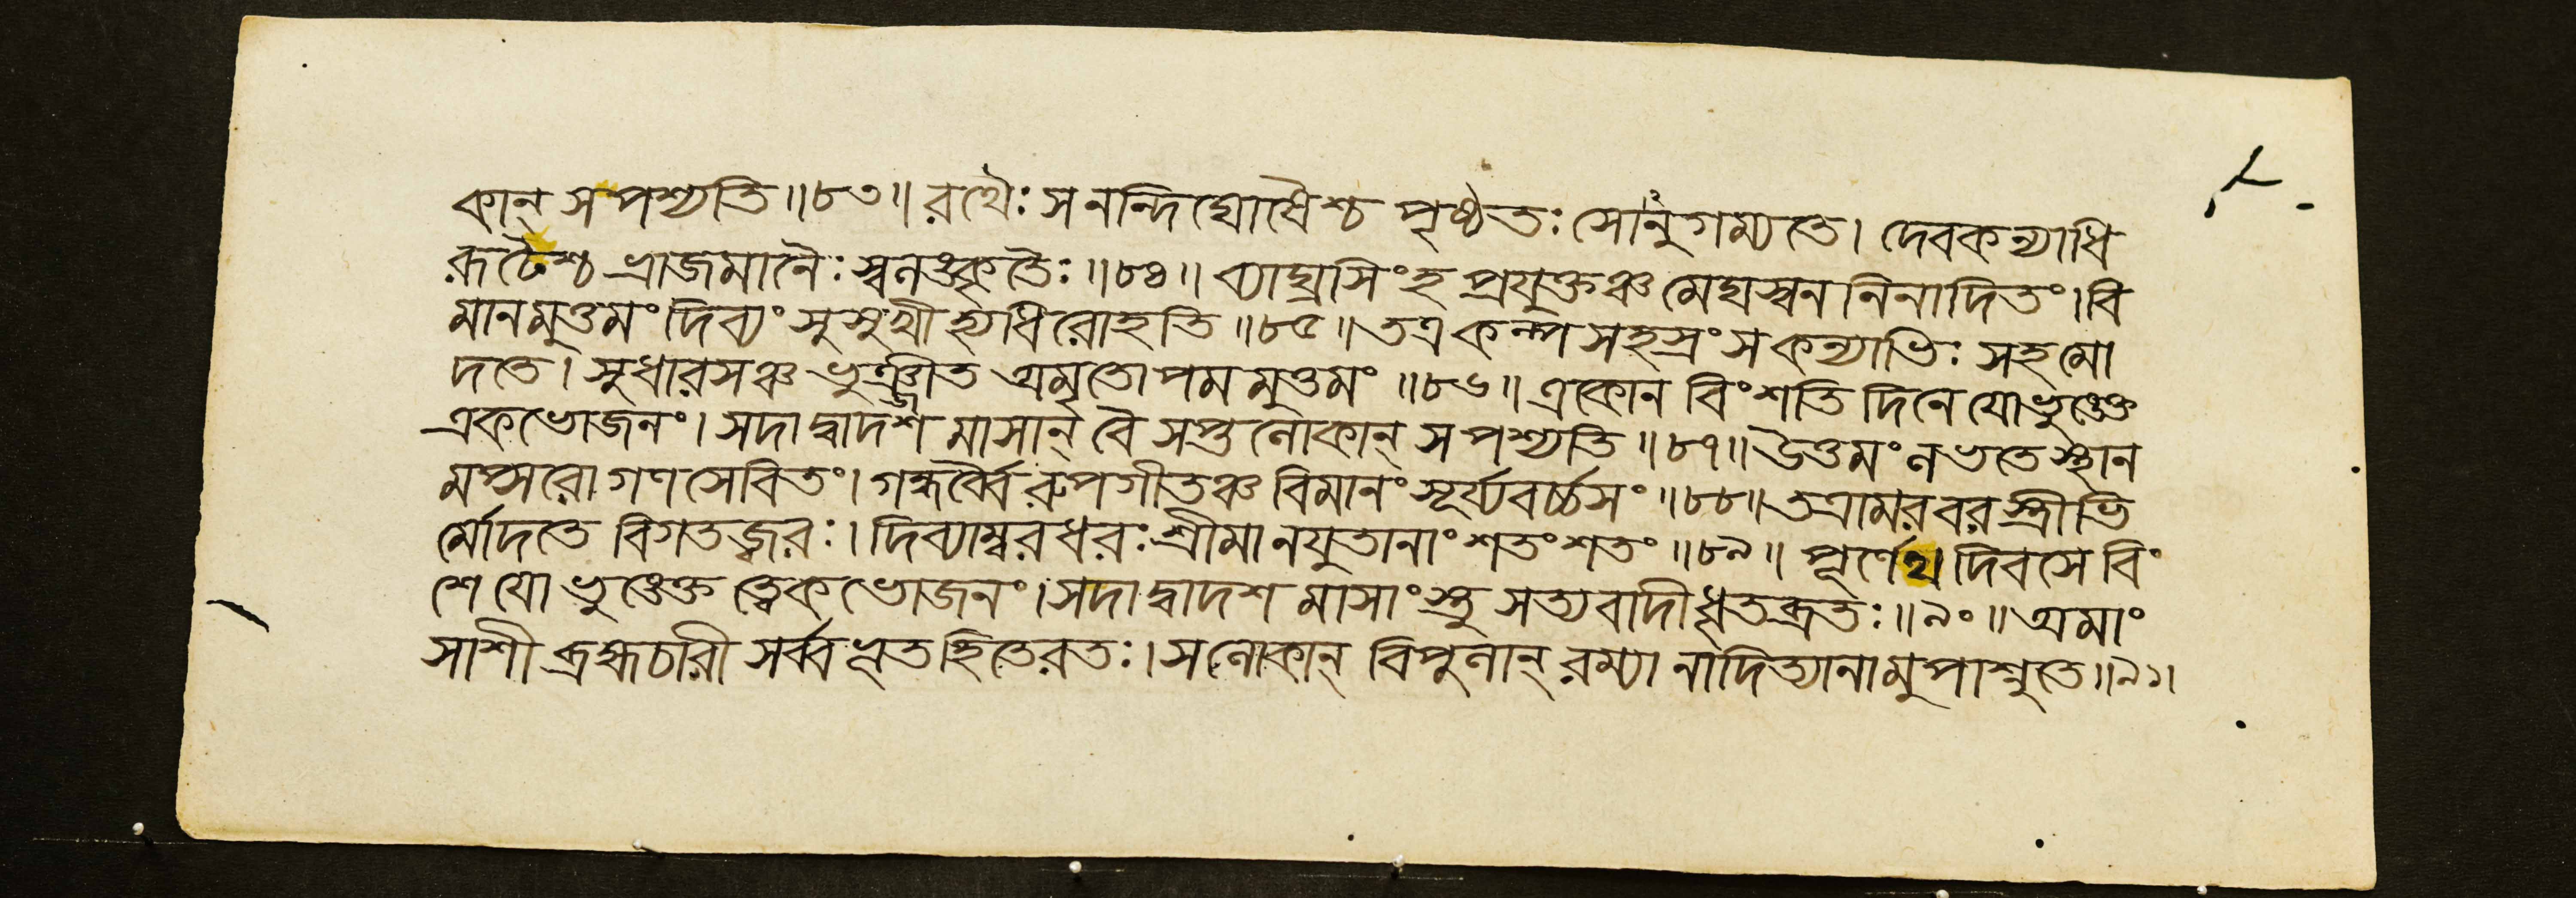 কান্ স পশ্যতি॥৮৩॥ রথৈঃ স নন্দিঘোষৈশ্চ পৃষ্ঠতঃ সোনুগম্যতে। দেবকন্যাধি
রূঢৈশ্চ ভ্রাজমানৈঃ স্বলঙ্কৃতৈঃ॥৮৪॥ ব্যাঘ্রসিংহপ্রযুক্তঞ্চ মেঘস্বননিনাদিতং। বি
মানমুত্তমং দিব্যং সুসুখী হ্যধিরোহতি॥৮৫॥ তত্র কল্পসহস্রং স কন্যাভিঃ সহ মো
দতে। সুধারসঞ্চ ভুঞ্জীত অমৃতোপমমুত্তমং॥৮৬॥ একোনবিংশতি দিনে যো ভুঙ্ক্তে
একভোজনং। সদা দ্বাদশমাসান্ বৈ সপ্তলোকান্ স পশ্যতি॥৮৭॥ উত্তমং লভতে স্থান
মপ্সরোগণসেবিতং। গন্ধর্ব্বৈরুপগীতঞ্চ বিমানং সূর্য্যবর্চ্চসং॥৮৮॥ তত্রামরবরস্ত্রীভি
র্মোদতে বিগতজ্বরঃ। দিব্যাম্বরধরঃ শ্রীমানযুতানাং শতং শতং॥৮৯॥ পূর্ণেথ দিবসে বিং
শে যো ভুঙ্ক্তে ত্বেকভোজনং। সদা দ্বাদশমাসাংস্তু সত্যবাদী ধৃতব্রতঃ॥৯০॥ অমাং
সাশী ব্রহ্মচারী সর্ব্বভূতহিতে রতঃ। স লোকান্ বিপুলান্ রম্যানাদিত্যানামুপাশ্নুতে॥৯১॥